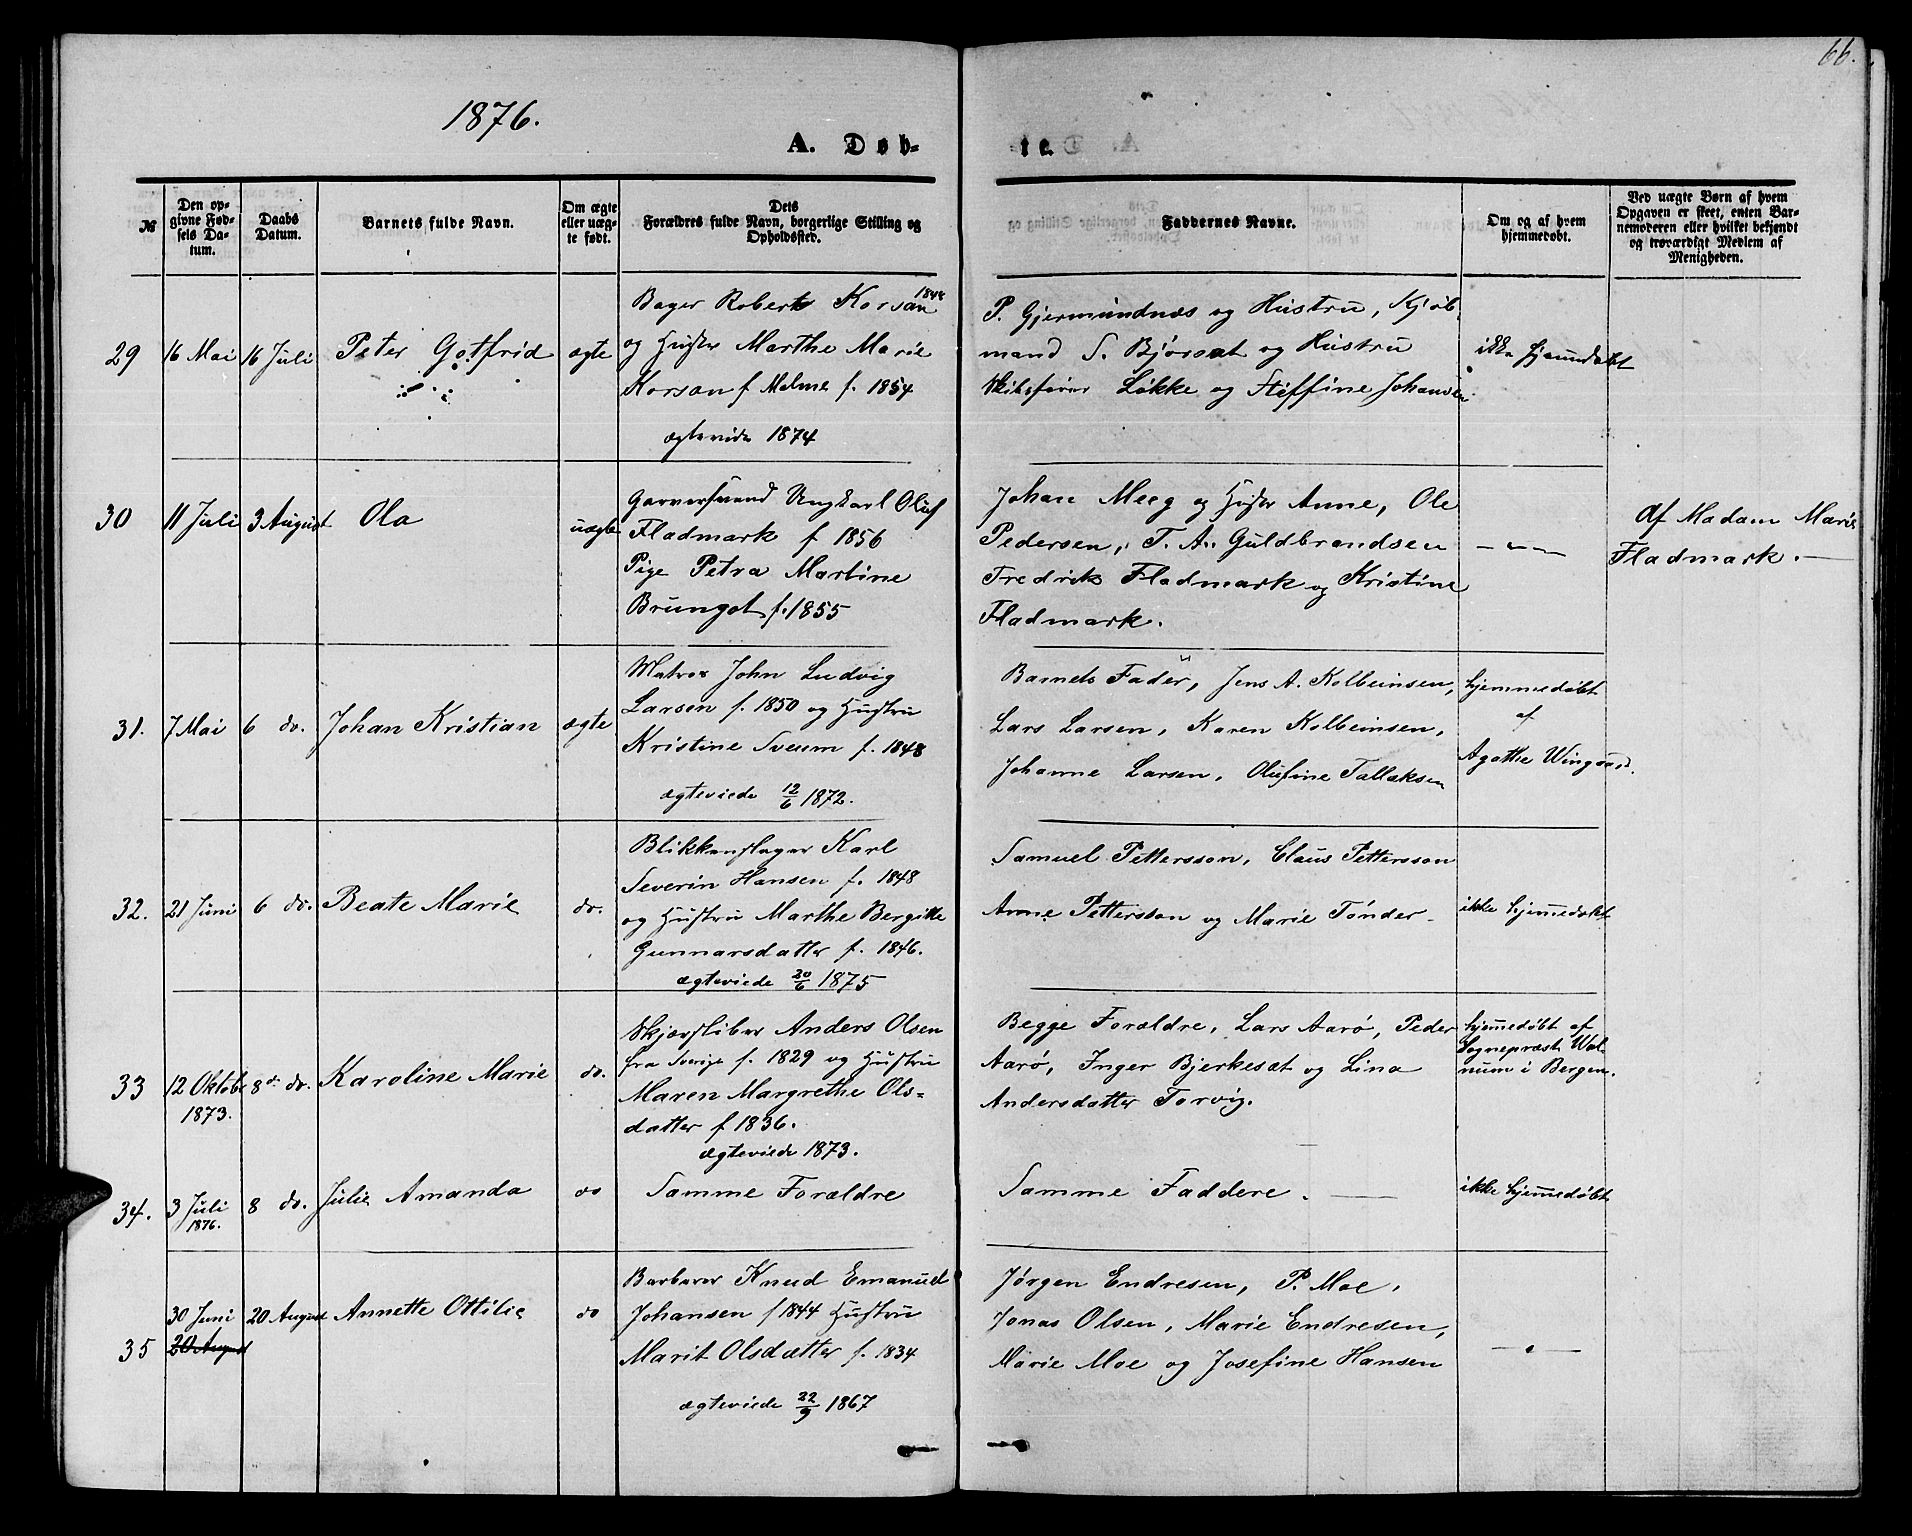 66.
1876.
A. Døb-
te.
№
Den op-
givne Fød-
sels Da-
tum.
Daabs
Datum.
Barnets fulde Navn.
Om ægte
eller uæg-
te født.
Dets
Forældres fulde Navn, borgerlige Stilling og
Opholdssted.
Faddernes Navne.
Om og af hvem
hjemmedøbt.
Ved uægte Børn af hvem
Opgaven er skeet, enten Bar-
nemoderen eller hvilket bekjendt
og troværdigt Medlem af
Menigheden.
29
16 Mai
16 Juli
Peter Gotfrid
ægte
Bager Robert Korsan 1848
og Hustr Marthe Marie
Korsan f Malme f. 1854
ægtevide 1874
P. Gjermundnæs og Hustru, Kjøb
mand S. Bjørsæt og Hustru
Skibsfører Løkke og Steffine Johansen
ikke hjemmdøbt
30
11 Juli
3 August
Ola
uægte
Garversvend Ungkarl Oluf
Fladmark f 1856
Pige Petra Martine
Brungot f. 1855
Johan Meeg og Hustr Anne, Ole
Pedersen, T. A. Guldbrandsen
Fredrik Fladmark og Kristine
Fladmark.
Af Madam Marie
Fladmark.
31.
7 Mai
6 do.
Johan Kristian
ægte
Matros John Ludvig
Larsen f. 1850 og Hustru
Kristine Sveum f. 1848
ægteviede 12/6 1872.
Barnets Fader, Jens A. Kolbeinsen,
Lars Larsen, Karen Kolbeinsen,
Johanne Larsen, Olufine Tallaksen
hjemmedøbt
af
Agathe Wingaard.
32.
21 Juni
6 do.
Beate Marie
do.
Blikkenslager Karl
Severin Hansen f. 1848
og Hustru Marthe Bergitte
Gunnarsdatter f. 1846.
ægteviede 20/6 1875
Samuel Pettersson, Claus Pettersson
Anne Pettersson og Marie Tønder
ikke hjemmedøbt
33
12 Oktobr
1873.
8de do.
Karoline Marie
do.
Skjærsliber Anders Olsen
fra Sverige f. 1829 og Hustru
Maren Margrethe Ols-
datter f 1836.
ægteviede 1873.
Begge Forældre, Lars Aarø, Peder
Aarø, Inger Bjerkesæt og Lina
Andersdatter Torvig.
hjemmedøbt af
Sognepræst Wal-
num i Bergen.
34.
3 Juli
1876.
8 do.
Julie Amanda
do
Samme Forældre
Samme Faddere.
ikke hjemmedøbt
35
30 Juni
20 August
20 August
Annette Ottilie
do
Barberer Knud Emanuel
Johansen f 1844 Hustru
Marit Olsdatter f. 1834
ægteviede 22/9 1867
Jørgen Endresen, P. Moe,
Jonas Olsen, Marie Endresen,
Marie Moe og Josefine Hansen